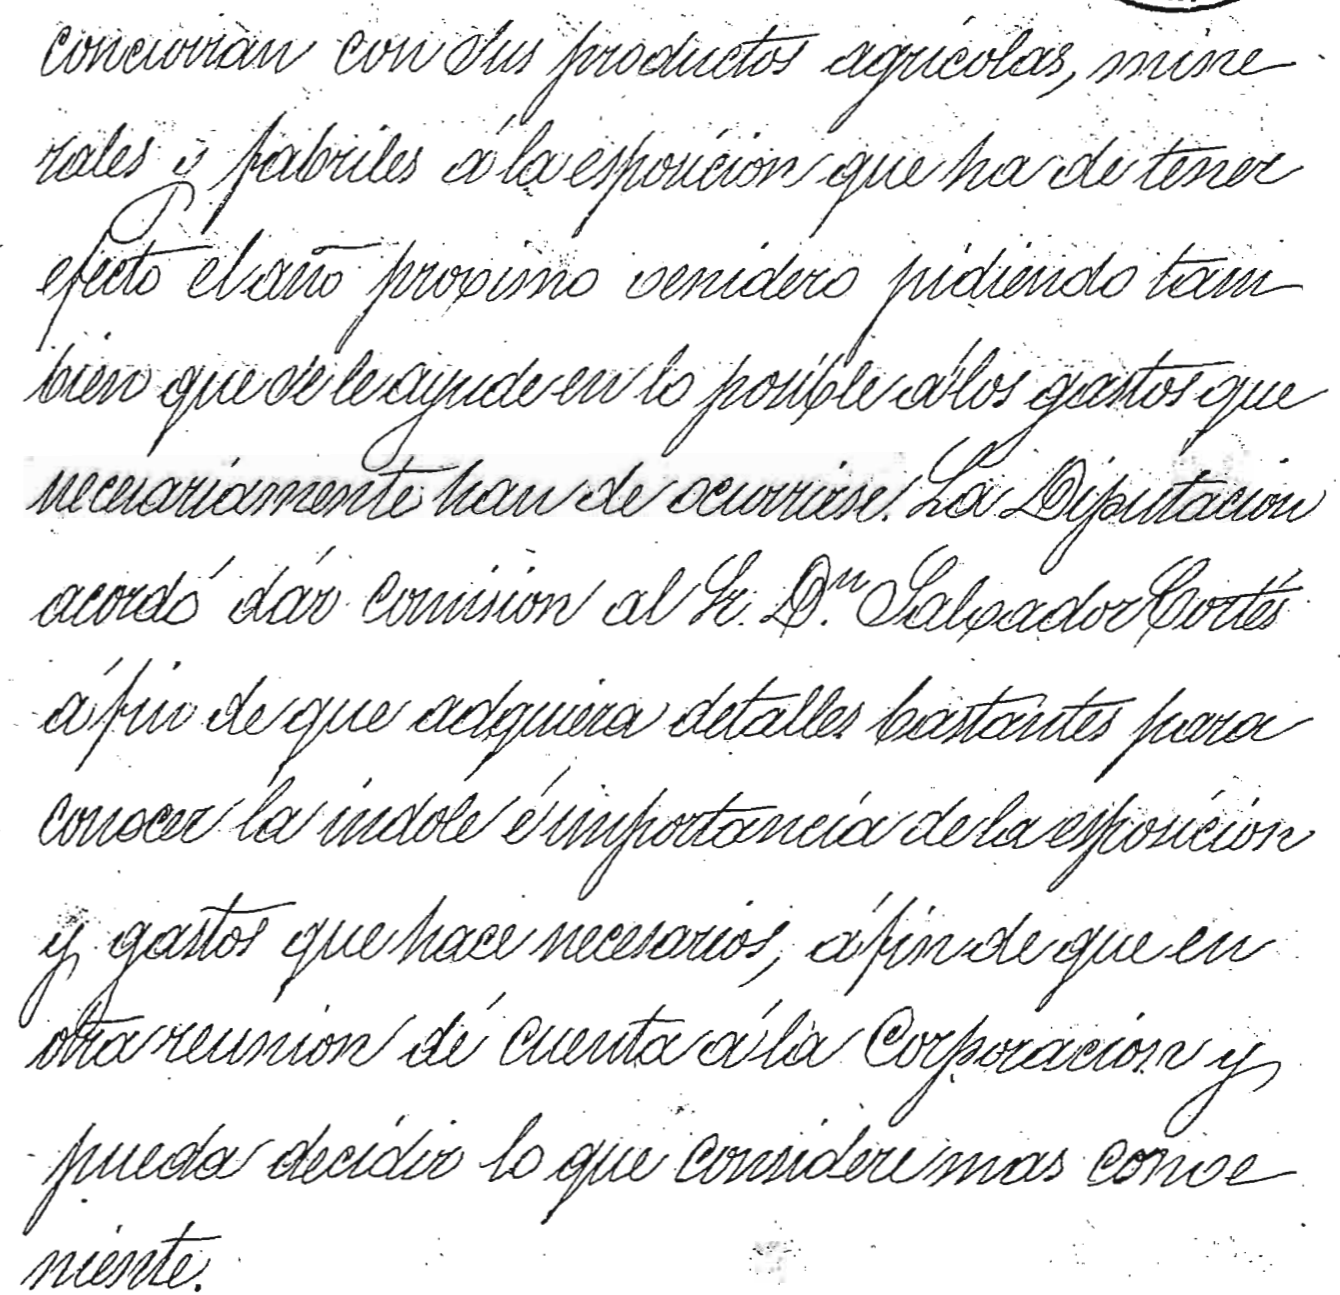 concurran con sus productos agrícolas, mine
rales y fabriles á la esposicion que ha de tener
efecto el año proximo venidero pidiendo tam
bien que se le ayude en lo posible á los gastos que
necesariamente han de ocurrirse. La Diputacion
acordó dár comision al Sr. Dn. Salvador Cortés
á fin de que adquiera detalles bastantes para
conocer la indole é importancia de la esposicion
y gastos que hace necesarios, á fin de que en
otra reunion dé cuenta á la Corporacion y
pueda decidir lo que considere mas conve
niente.